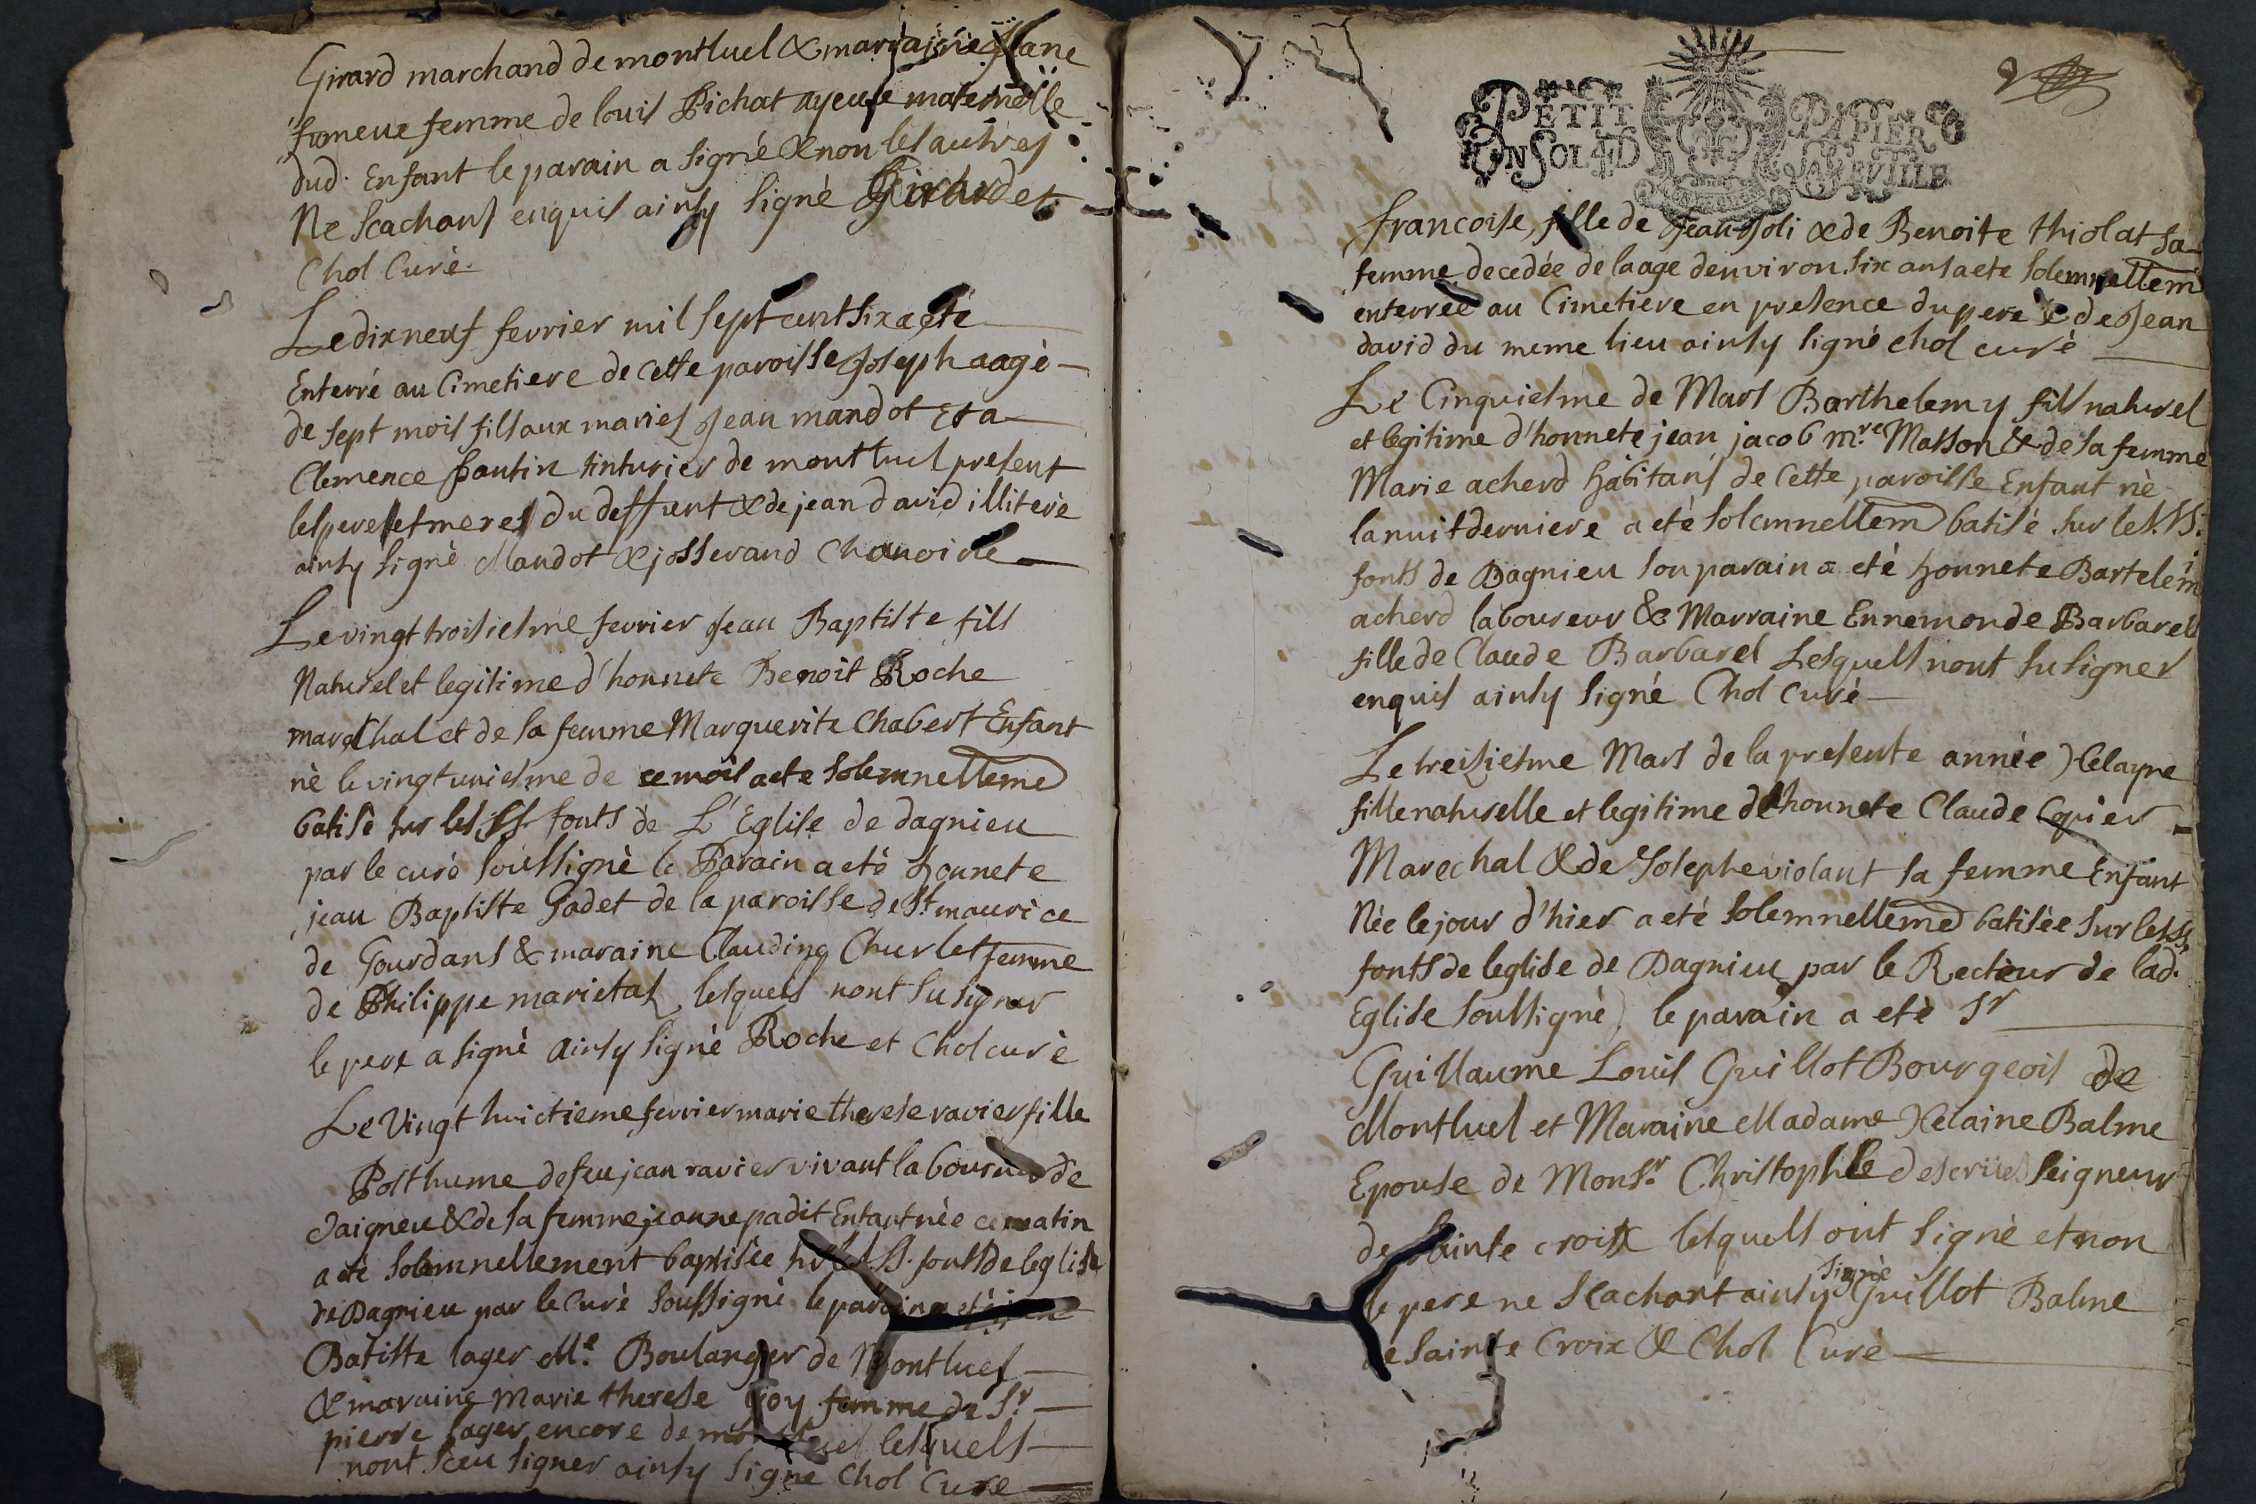 Girard marchand de montluel & marraine Jane
fromeue femme de louis Pichat ayeule maternelle
dud. Enfant le parain a signé & non les autres
Ne scachans enquis ainsy signé Girard et
Chol Curé.
Le dix neuf fevrier mil sept cent six a été
Enterré au Cimetiere de Cette paroisse Joseph aagé
de sept mois fils aux mariés Jean mandot et a
Clemence pautin tinturier de montluel present
les peres et meres du deffunt & de jean david illiteré
ainsy signé Mandot & josserand Chanoine
Le vingt troisiesme fevrier Jean Baptiste fils
Naturel et legitime d'honnete Benoit Roche
marechal et de sa femme Marguerite Chabert Enfant
né le vingt uniesme de ce mois a ete solemnelleme
batisé sur les SS. fonts de L'Eglise de dagnieu
par le curé soussigné le Parain a eté honnete
jean Baptiste Gadet de la paroisse de St. maurice
de Gourdans & maraine Claudine Churlet femme
de Philippe marietas lesquels nont su signer
le pere a signé Ainsy signé Roche et Chol curé
Le Vingt huictieme fevrier marie therese ravier fille
Posthume de feu jean ravier vivant laboureur de
daigneu & de sa femme jeanne padit Enfant née ce matin
a eté solemnellement baptisée sur les SS. fonts de leglise
de Dagnieu par le Curé soussigné le parain a eté jean
Batiste lager Me. Boulanger de Montluel
& maraine Marie therese Goy femme de Sr
pierre lager encore de montluel lesquels
nont sceu signer ainsy signé Chol Curé
PETIT PAPIER
UN SOL 4 D LA FEVILLE
francoise, fille de Jean Joli & de Benoite thiolat sa
femme decedée de laage denviron six ans a ete solemnellem
enterrée au Cimetiere en presence du pere & de Jean
david du meme lieu ainsy signé chol curé
Le Cinquiesme de Mars Barthelemy fils naturel
et legitime d'honnete jean jacob mre. Masson & de sa femme
Marie acherd habitans de Cette paroisse Enfant né
la nuit derniere a eté solemnellem batisé sur les SS.
fonts de Dagnieu son parain a eté honnete Bartelemi
acherd laboureur & Marraine Ennemonde Barbarel
fille de Claude Barbarel Lesquels nont su signer
enquis ainsy signé Chol Curé
Le treiziesme Mars de la presente année Helayne
fille naturelle et legitime de honnete Claude Copier
Marechal & de Josephe violant sa femme Enfant
Née le jour d'hier a eté solemnelleme batisée sur les SS
fonts de leglise de Dagnieu par le Recteur de lad.
Eglise soussigné, le parain a eté Sr
Guillaume Louis Guillot Bourgeois de
Montluel et Maraine Madame Helaine Balme
Epouse de Monsr. Christophle descrües seigneur
de Sainte croix lesquels ont signé et non
le pere ne scachant ainsy signé Guillot Balme
de Sainte Croix & Chol Curé